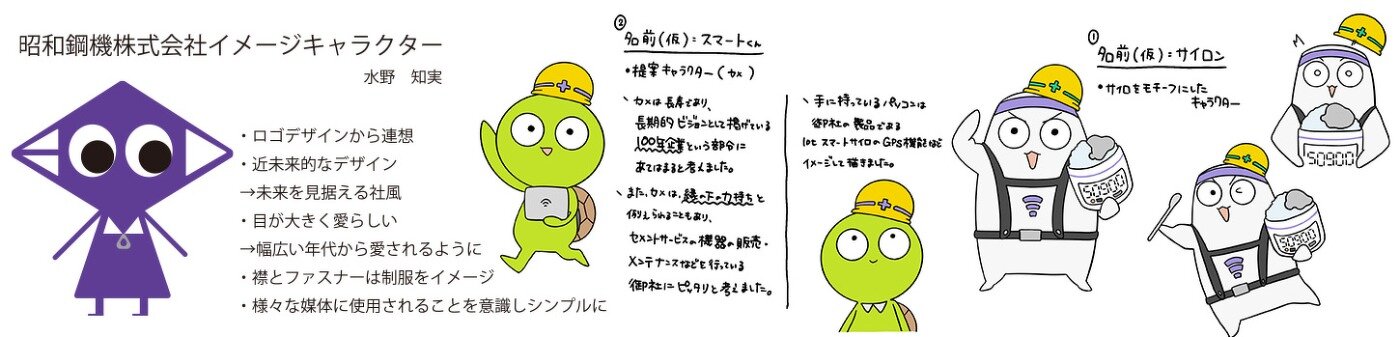 昭和鋼機株式会社イメージキャラクター
水野　知実
・ロゴデザインから連想
・近未来的なデザイン
→未来を見据える社風
・目が大きく愛らしい
→幅広い年代から愛されるように
・襟とファスナーは制服をイメージ
・様々な媒体に使用されることを意識しシンプルに
②
名前(仮):スマートくん
・提案キャラクター(カメ)
カメは長寿であり、
長期的ビジョンとして掲げている
100年企業という部分に
あてはまると考えました。
また、カメは、縁の下の力持ちと
例えられることもあり、
セメントサービスの機器の販売・
メンテナンスなどを行っている
御社にピッタリと考えました。
手に持っているパソコンは
御社の製品である
IoTスマートサイロのGPS機能など
イメージして描きました。
①
名前(仮):サイロン
・サイロをモチーフにした
キャラクター
50900
50900
50900